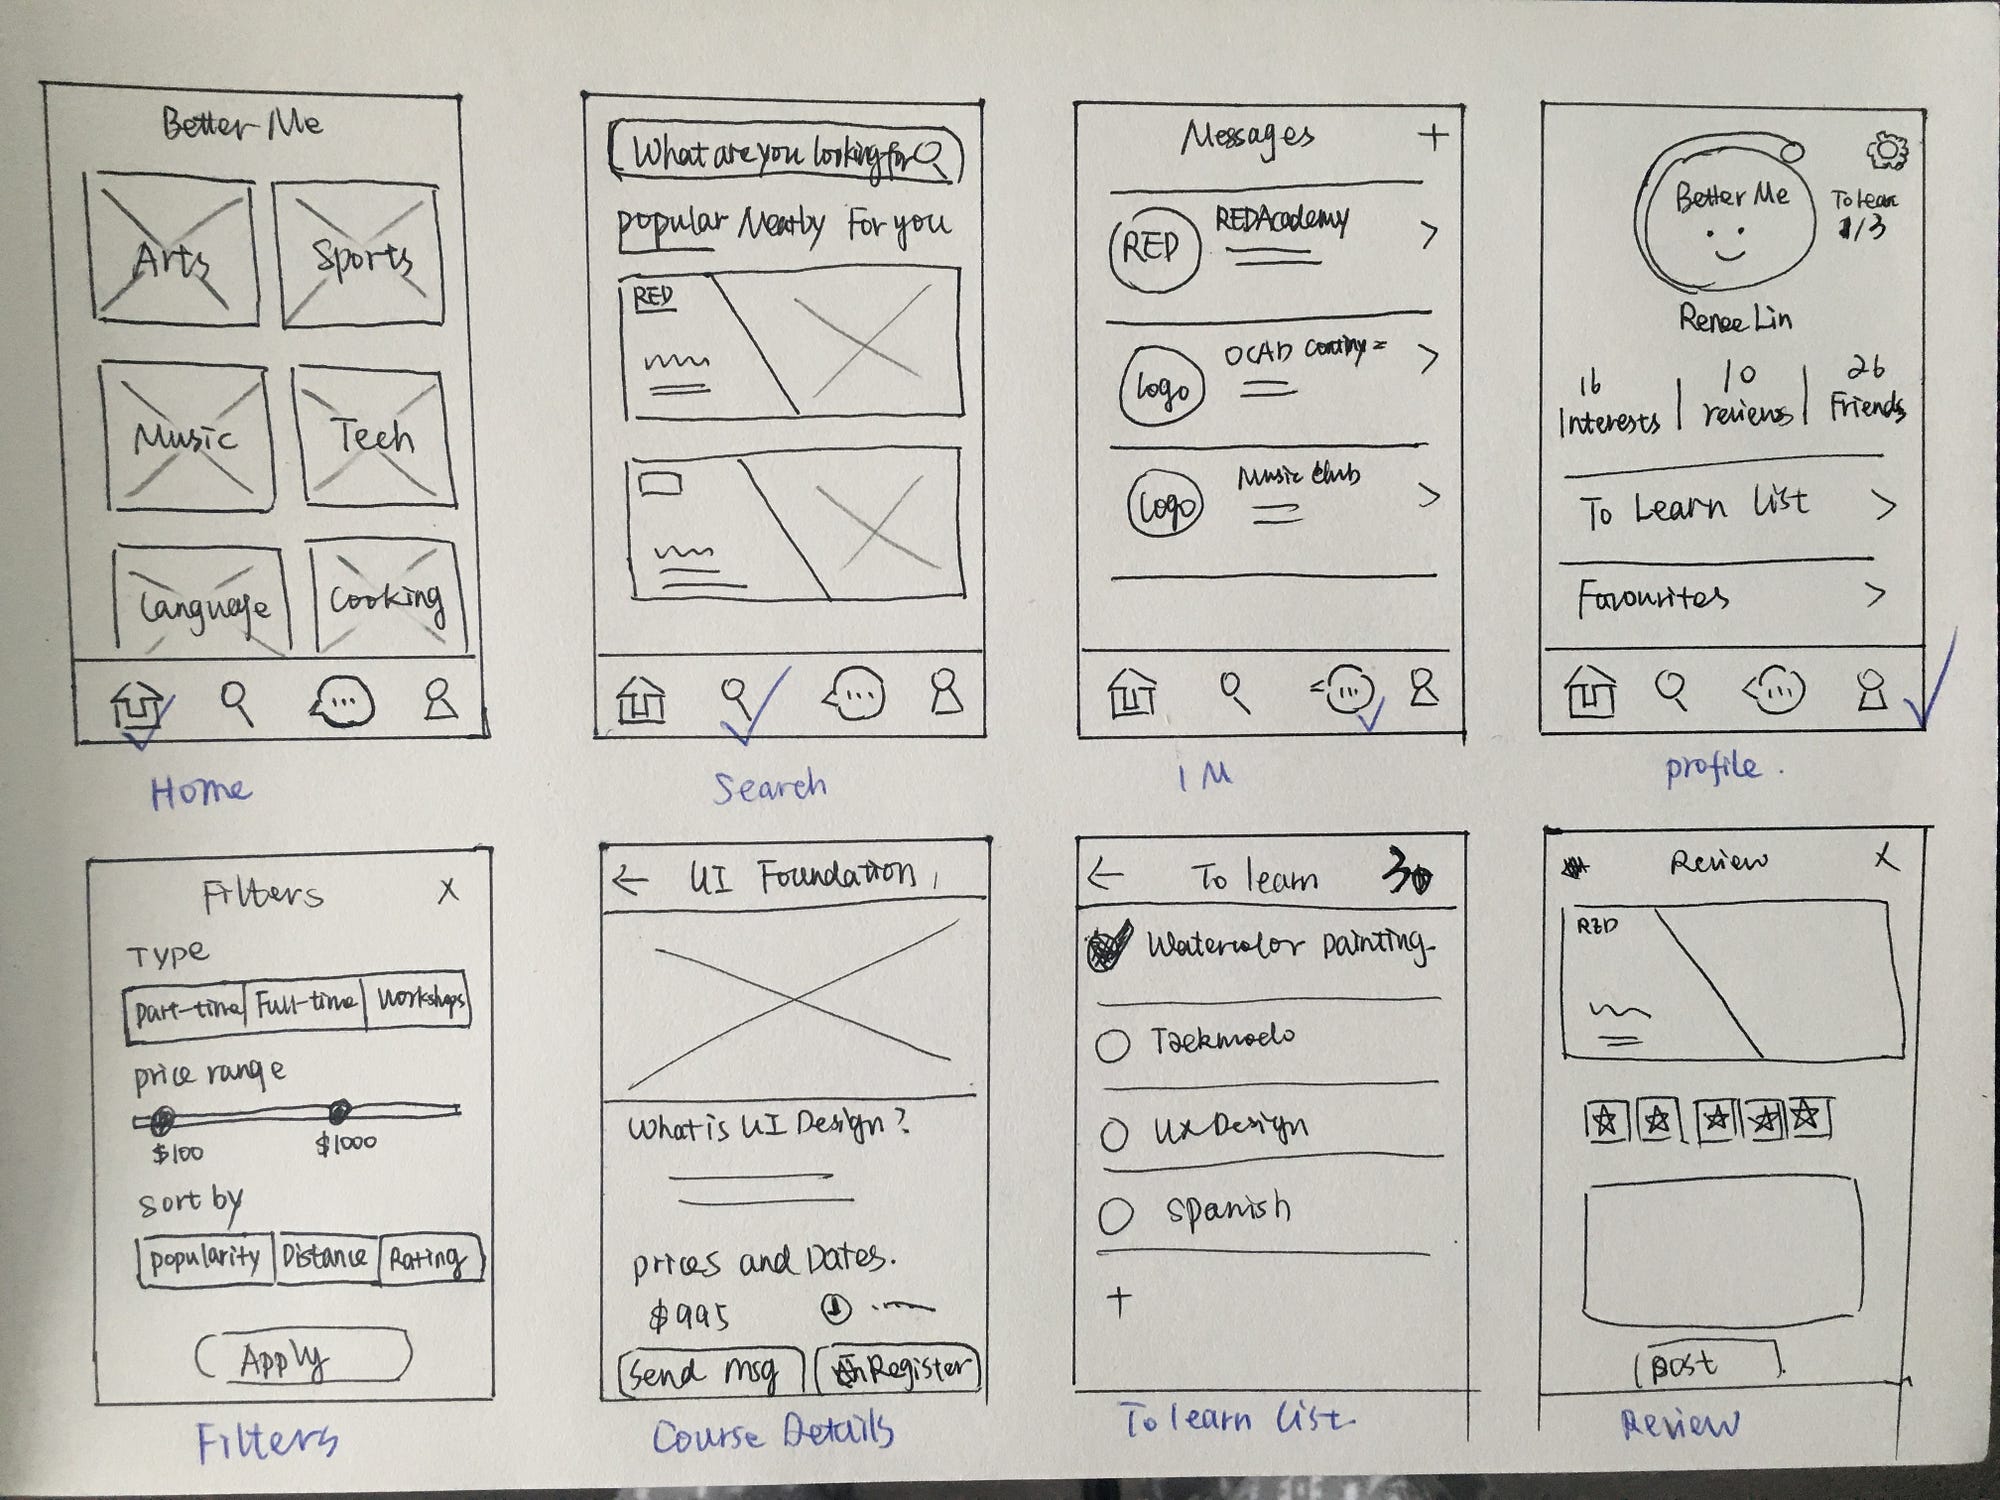 Better Me
Arts
Sports
Music
Tech
Language
Cooking
Home
What are you looking for
popular Nearby For you
RED
Search
Messages +
RED
REDAcademy
logo
OCAD
logo
Music Club
IM
Better Me
To Learn
1/3
Renee Lin
16
Interests
10
reviews
26
Friends
To Learn List >
Favourites >
profile.
Filters X
Type
Part-time Full-time Workshops
price range
$100 $1000
Sort by
Popularity Distance Rating
Apply
Filters
← UI Foundation
What is UI Design?
Prices and Dates.
$995
Send msg
Register
Course Details
← To learn 3
Watercolor painting
Taekmodo
UX Design
Spanish
+
To learn list.
Review X
RED
post
Review